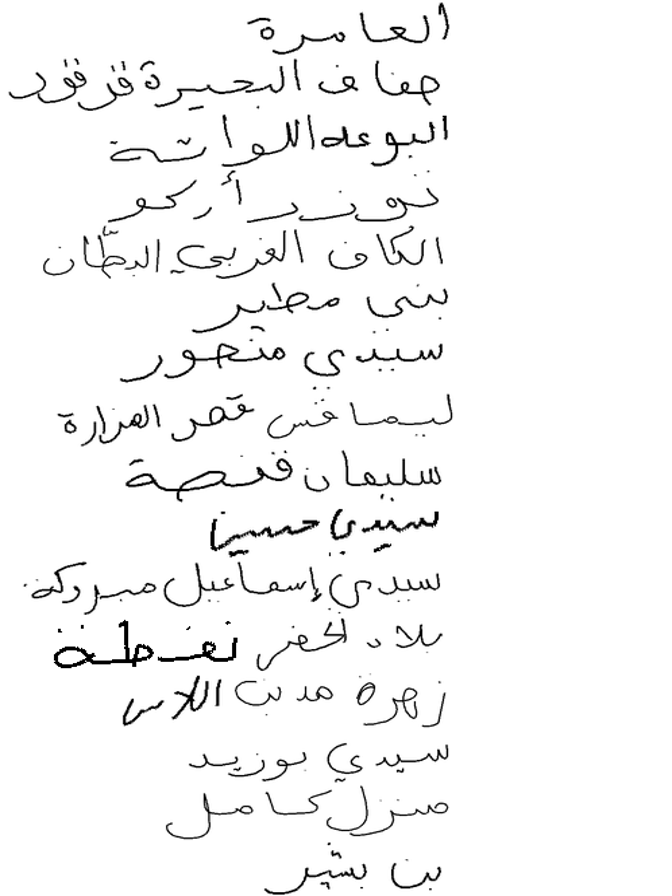 العامرة
حفاف البحيرة قرقور
البوعلي اللواتة
توزر أركو
الكاف الغربي البطّان
بني مطير
سيدي منصور
ليماقس قصر الهزارة
سليمان قفصة
سيدي حسين
سيدي إسماعيل مبروكة
بلاد الحضر نفطة
زهرة مدين اللاس
سيدي بوزيد
منزل كامل
بن بشير